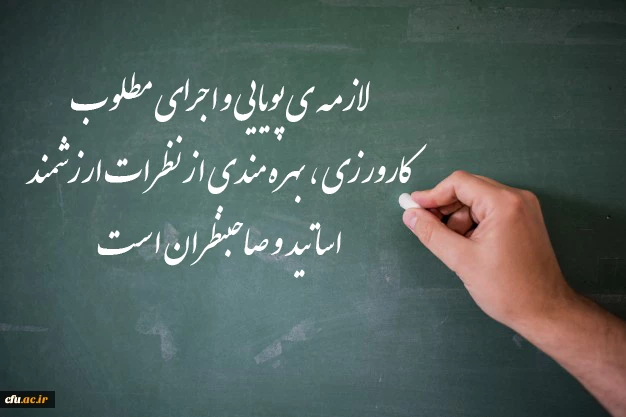 لازمه ی پویایی و اجرای مطلوب
کارورزی، بهره مندی از نظرات ارزشمند
اساتید و صاحبنظران است
cfu.ac.ir